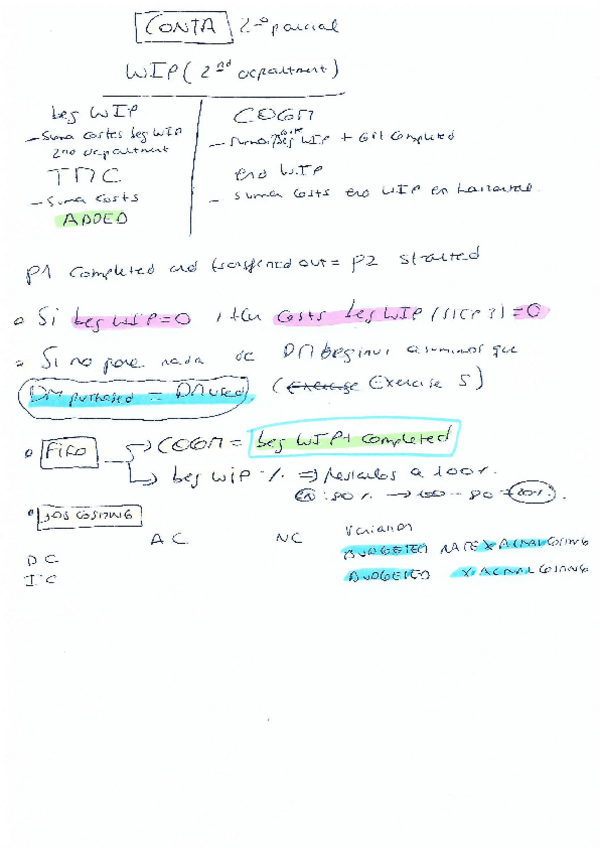 CONTA 2º parcial
WIP (2nd department)
beg WIP
- Suma costes beg WIP
2nd department
TMC
- Suma costs
ADDED
COGM
- Suma beg WIP + Completed
end WIP
- suma costs end WIP en horizontal.
P1 completed and transferred out = P2 started
Si beg WIP=0, then costs beg WIP (step 3) = 0
Si no pone nada de DM beginv asumimos que
DM purchased = DM used. (Exercise 5)
FIFO → COGM = beg WIP + completed
beg WIP % ⇒ restarlos a 100%.
80% → 100 - 80 = 20%.
JOB COSTING
AC NC Variation
DC BUDGETED RATE X ACTUAL COSTING
IC BUDGETED X ACTUAL COSTING